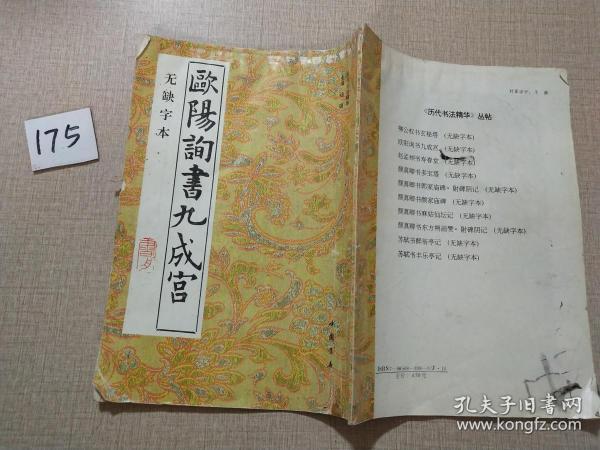 175
歐陽詢書九成宫
无缺字本
中国书店
封面设计:王
《历代书法精华》丛帖
柳公权书玄秘塔 (无缺字本)
欧阳询书九成宫 (无缺字本)
赵孟頫书寿春堂 (无缺字本)
颜真卿书多宝塔 (无缺字本)
颜真卿书郭家庙碑·附碑阴记 (无缺字本)
颜真卿书颜家庙碑 (无缺字本)
颜真卿书麻姑仙坛记 (无缺字本)
颜真卿书东方朔画赞·附碑阴记 (无缺字本)
苏轼书醉翁亭记 (无缺字本)
苏轼书丰乐亭记 (无缺字本)
孔夫子旧书网
www.kongfz.com